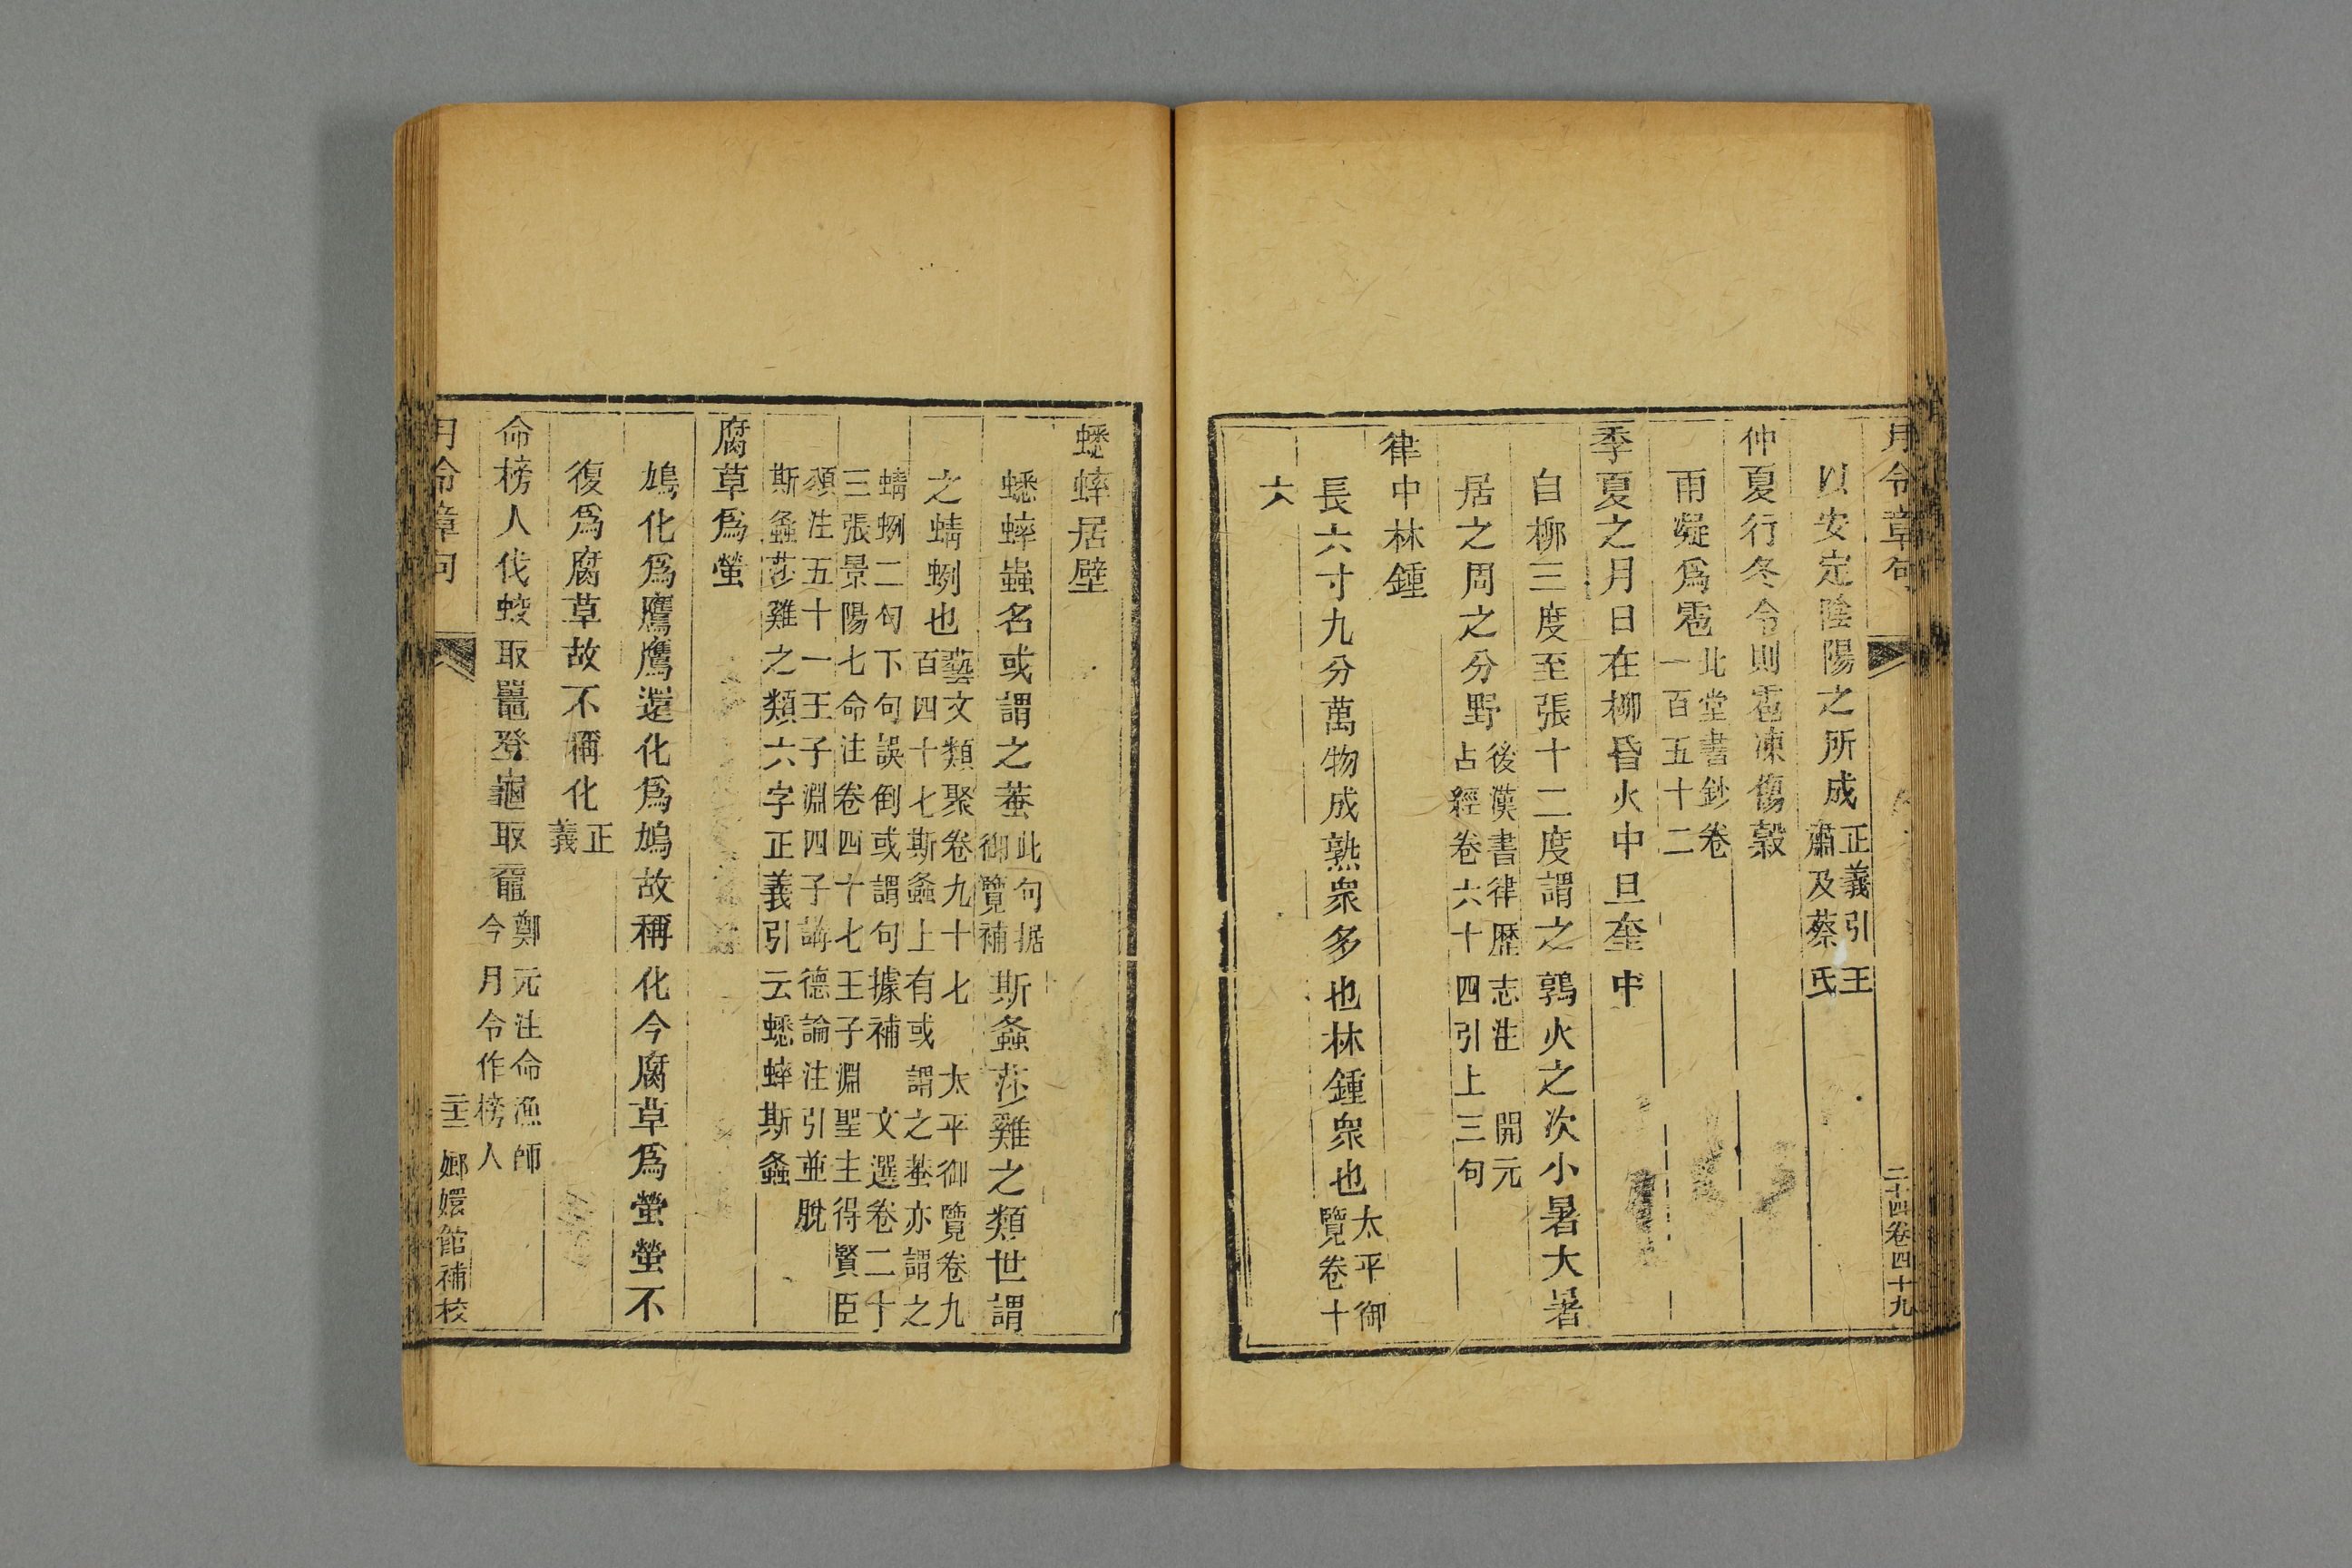 月令章句
二十四卷四十九
以安定陰陽之所成正義引王肅及蔡氏
仲夏行冬令則雹凍傷穀
雨凝爲雹北堂書鈔卷一百五十二
季夏之月日在柳昏火中旦奎中
自柳三度至張十二度謂之鶉火之次小暑大暑
居之周之分野後漢書律歷志注 開元占經卷六十四引上三句
律中林鍾
長六寸九分萬物成熟衆多也林鍾衆也太平御覽卷十
六
蟋蟀居壁
蟋蟀蟲名或謂之蛬此句据御覽補斯螽莎雞之類世謂
之蜻蛚也藝文類聚卷九十七 太平御覽卷九百四十七斯螽上有或謂之蛬亦謂之
蜻蛚二句下句誤倒或謂句據補 文選卷二十三張景陽七命注卷四十七王子淵聖主得賢臣
頌注五十一王子淵四子講德論注引並脫斯螽莎雞之類六字正義引云蟋蟀斯螽
腐草爲螢
鳩化爲鷹鷹還化爲鳩故稱化今腐草爲螢螢不
復爲腐草故不稱化正義
命榜人伐蛟取鼉登龜取黿鄭元注命漁師今月令作榜人
月令章句
二十三
嫏嬛館補校